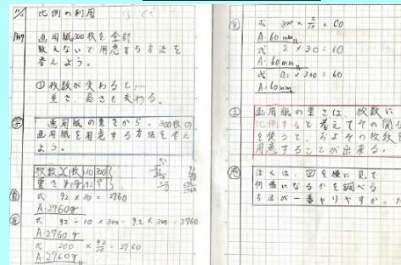 比例の利用
画用紙300枚を全部
数えないで用意する方法を
考えよう。
①枚数が変わると…
重さ 高さも変わる。
画用紙の重さから、300枚の
画用紙を用意する方法を考え
よう。
枚数x(枚) 10 300
重さy(g) 92 ?
式 92×30=2760
A.2760g
式 92÷10×300=9.2×300=2760
A.2760g
式 300×92/10=2760
A.2760g
式 300×2/10=60
A.60mm
式 2×30=60
A.60mm
式 0.2×300=60
A.60mm
画用紙の重さは、枚数に
比例すると考えてその関係
を使うと、およその枚数を
用意することが出来る。
ぼくは、図を横に見て
何倍になるかを調べる
方法が一番やりやすか